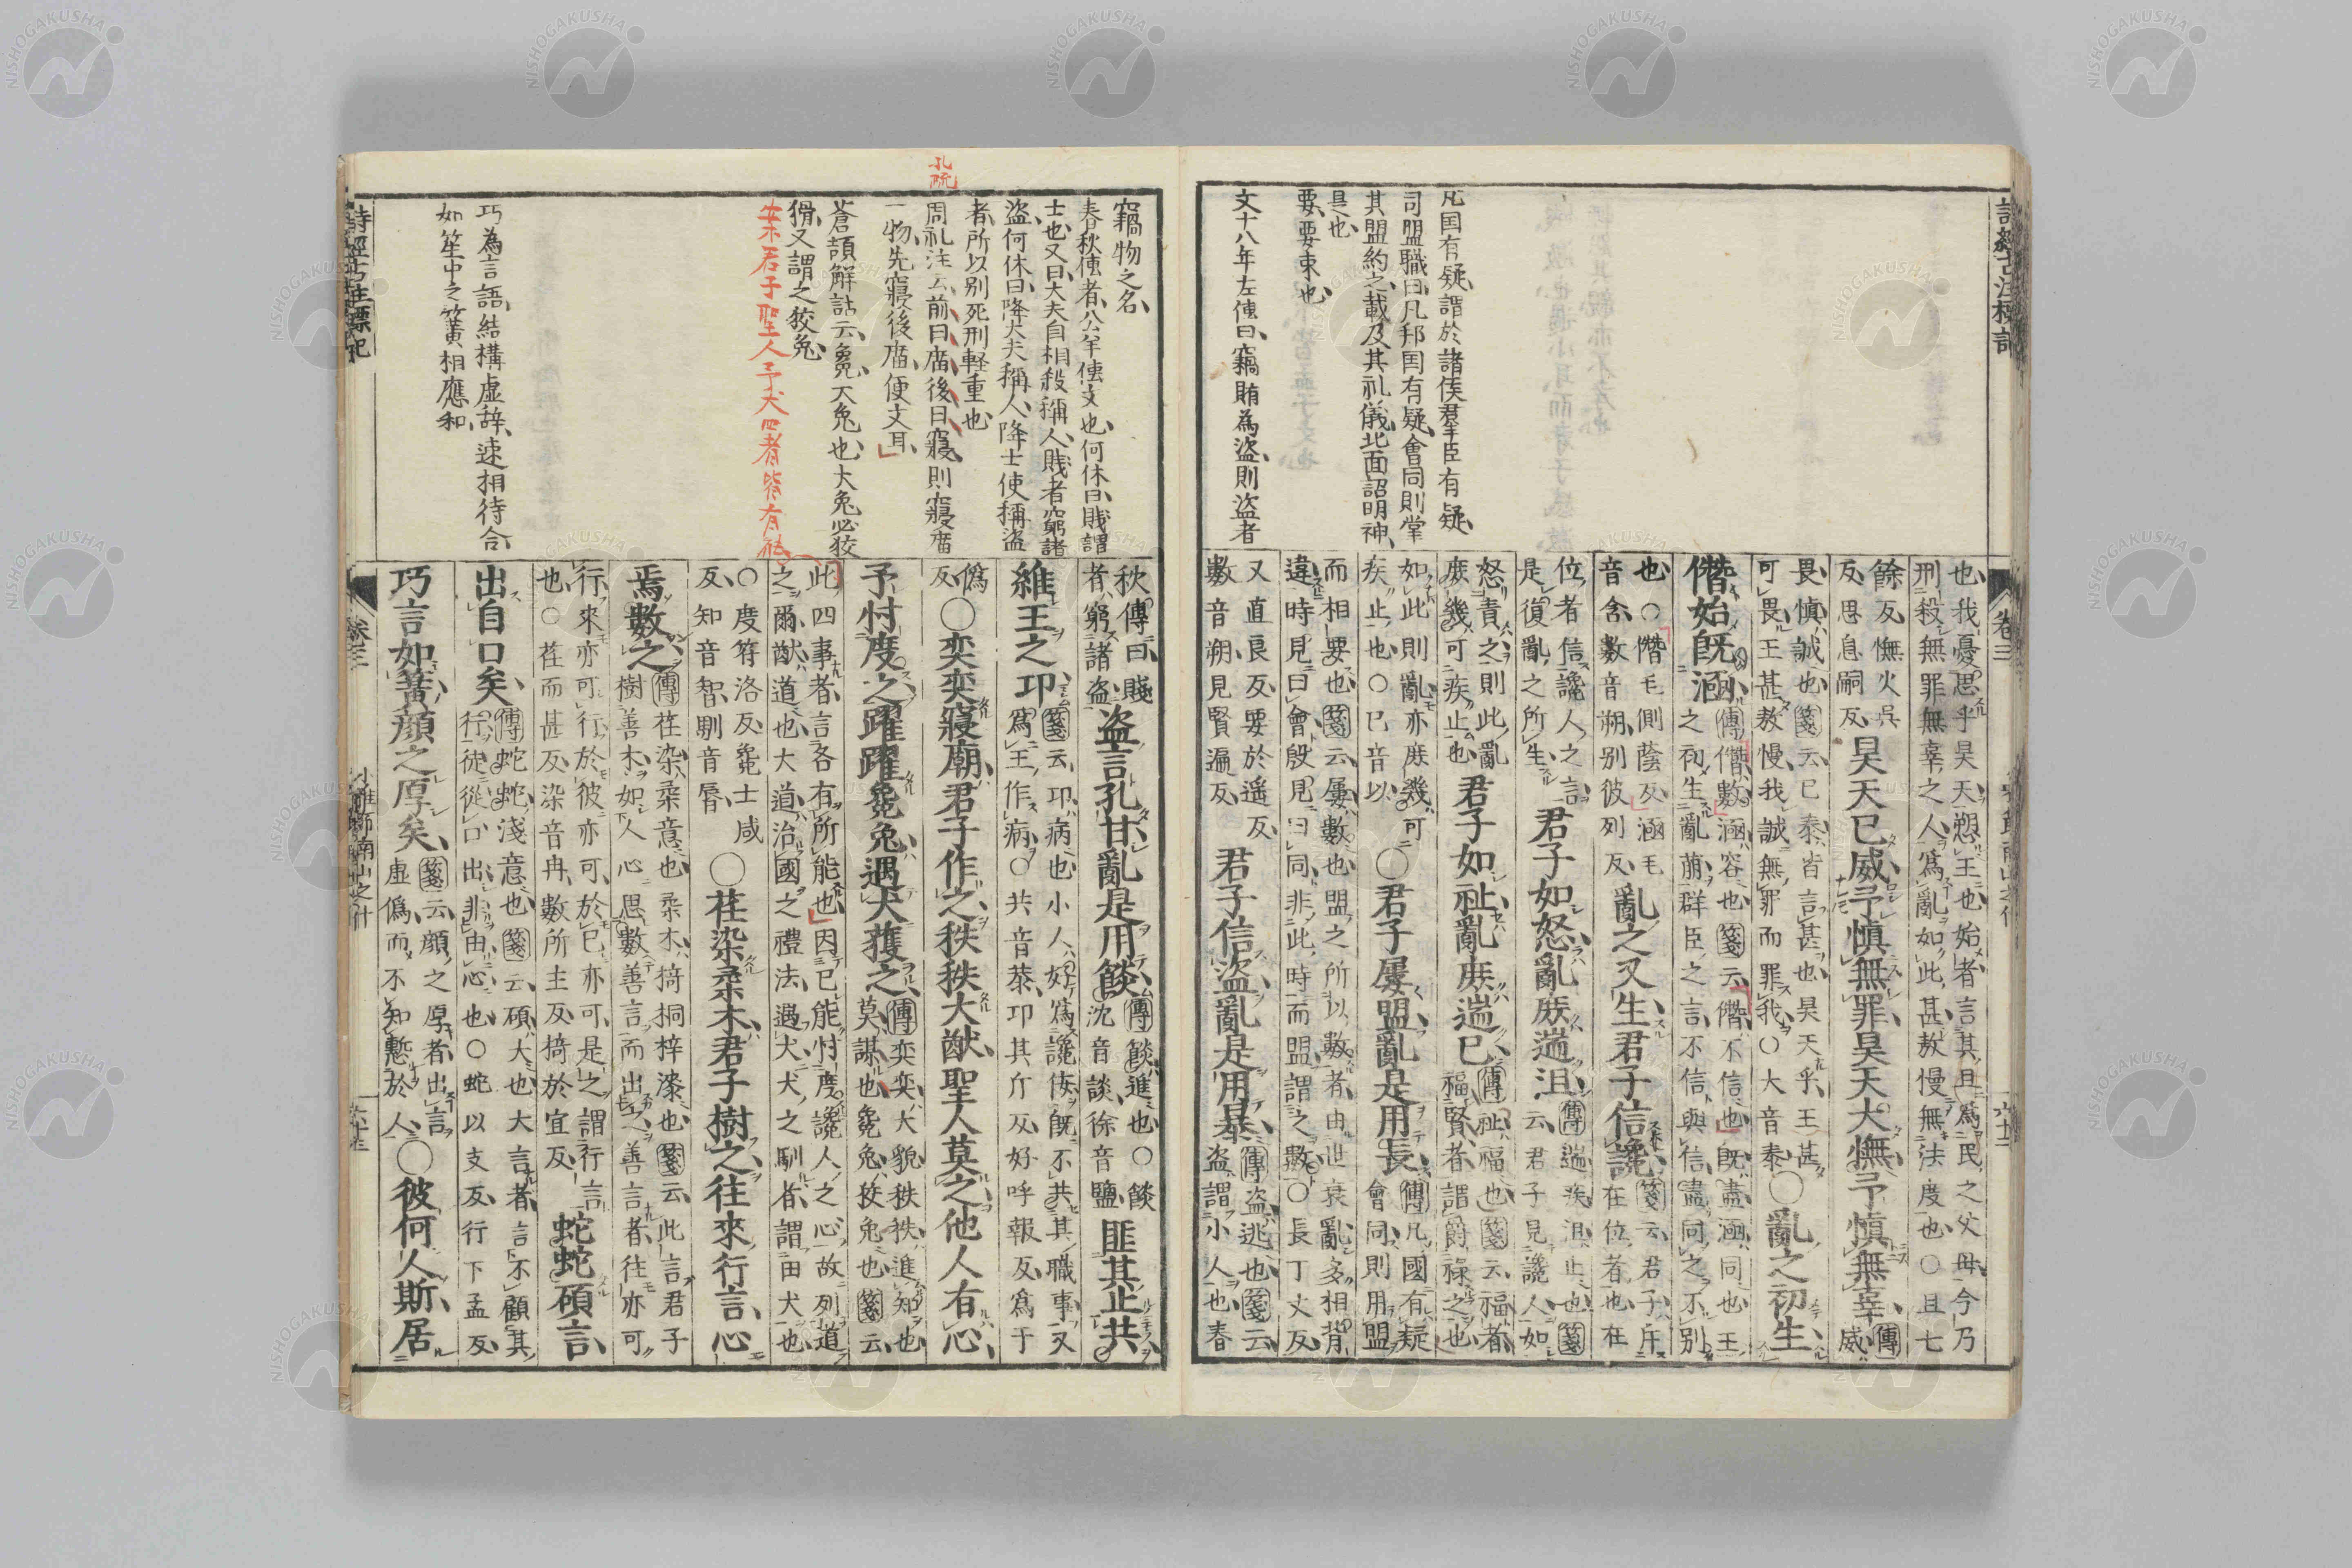 凡国有疑謂於諸侯羣臣有疑
司盟職曰凡邦国有疑會同則掌
其盟約之載及其礼儀北面詔明神
是也
要要束也
文十八年左傳曰竊賄為盗則盗者
卷三
也我憂思乎昊天愬王也始者言其且爲民之父母今乃
刑殺無罪無辜之人爲亂如此甚敖慢無法度也○且七
餘反憮火吳
反思息嗣反
昊天已威予愼無罪昊天大憮予愼無辜
傳威
畏愼誠也箋云已泰皆言甚也昊天乎王甚
可畏王甚敖慢我誠無罪而罪我○大音泰
○亂之初生
僭始既涵
傳僭數涵容也箋云僭不信也既盡涵同也王
之初生亂萌群臣之言不信與信盡同之不別
也○僭毛側蔭反涵毛
音含數音朔別彼列反
亂之又生君子信讒
箋云君子斥
在位者也在
位者信讒人之言
是復亂之所生
君子如怒亂庶遄沮
傳遄疾沮止也箋
云君子見讒人如
怒責之則此亂
庶幾可疾止也
君子如祉亂庶遄已
傳祉福也箋云福者
福賢者謂爵祿之也
如此則亂亦庶幾可
疾止也○已音以
○君子屢盟亂是用長
傳凡國有疑
會同則用盟
而相要也箋云屢數也盟之所以數者由世衰亂多相背
違時見曰會殷見曰同非此時而盟謂之數○長丁丈反
又直良反要於遥反
數音朔見賢遍反
君子信盜亂是用暴
傳盜逃也箋云
盜謂小人也春
孔疏
竊物之名
春秋傳者公羊傳文也何休曰賎謂
士也又曰大夫自相殺稱人賎者窮諸
盗何休曰降大夫稱人降士使稱盗
者所以別死刑軽重也
周礼注云前曰廟後曰寢則寢廟
一物先寢後廟便文耳
蒼頡解詁云毚大兔也大兔必狡
猾又謂之狡兔
案君子聖人予犬四者皆有能
巧為言語結構虚辞速相待合
如笙中之簧相應和
秋傳曰賤
者窮諸盜
盜言孔甘亂是用餤
傳餤進也○餤
沈音談徐音鹽
匪其止共
維王之邛
箋云邛病也小人好爲讒佞既不共其職事又
爲王作病○共音恭邛其斤反好呼報反爲于
僞
反
○奕奕寢廟君子作之秩秩大猷聖人莫之他人有心
予忖度之躍躍毚兔遇犬獲之
傳奕奕大貌秩秩進知也
莫謀也毚兔狡兔也箋云
此四事者言各有所能也因已能忖度讒人之心故列道
之爾猷道也大道治國之禮法遇犬犬之馴者謂田犬也
○度符洛反毚士咸
反知音智馴音脣
○荏染柔木君子樹之往來行言心
焉數之
傳荏染柔意也柔木椅桐梓漆也箋云此言君子
樹善木如人心思數善言而出之善言者往亦可
行來亦可行於彼亦可於已亦可是之謂行言
也○荏而甚反染音冉數所主反椅於宜反
蛇蛇碩言
出自口矣
傳蛇蛇淺意也箋云碩大也大言者言不顧其
行徒從口出非由心也○蛇以支反行下孟反
巧言如簧顏之厚矣
箋云顏之厚者出言
虛僞而不知慙於人
○彼何人斯居
詩經古註標記
卷三
小雅節南山之什